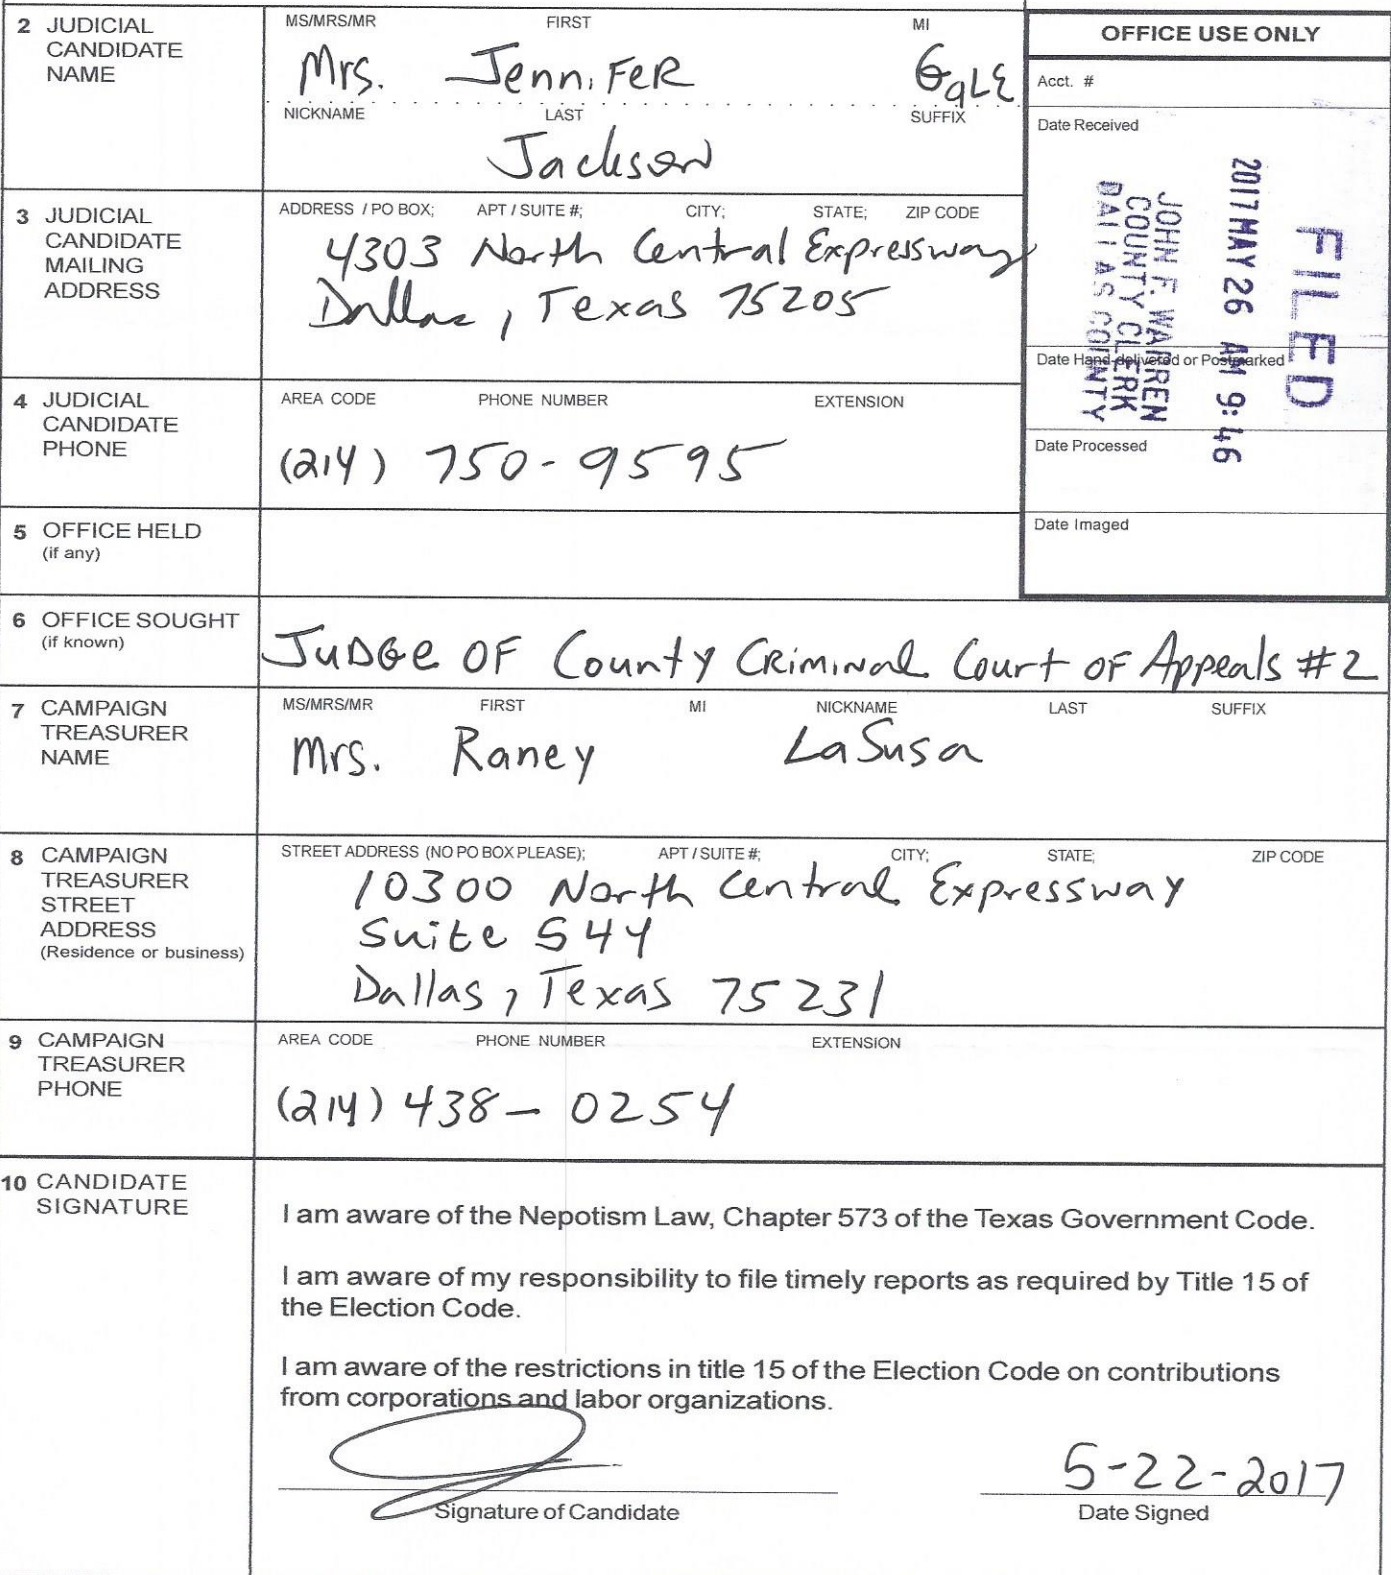 2 JUDICIAL CANDIDATE NAME
MS/MRS/MR FIRST MI
Mrs. JenniFeR GaLE
NICKNAME LAST SUFFIX
Jackson
OFFICE USE ONLY
Acct. #
Date Received
FILED
2017 MAY 26 AM 9:46
JOHN F. WARREN
COUNTY CLERK
DALLAS COUNTY
Date Hand-delivered or Postmarked
Date Processed
Date Imaged
3 JUDICIAL CANDIDATE MAILING ADDRESS
ADDRESS / PO BOX; APT / SUITE #; CITY; STATE; ZIP CODE
4303 North Central Expressway
Dallas, Texas 75205
4 JUDICIAL CANDIDATE PHONE
AREA CODE PHONE NUMBER EXTENSION
(214) 750-9595
5 OFFICE HELD
(if any)
6 OFFICE SOUGHT
(if known)
JuDGe OF County CRiminal Court oF Appeals #2
7 CAMPAIGN TREASURER NAME
MS/MRS/MR FIRST MI NICKNAME LAST SUFFIX
Mrs. Raney LaSusa
8 CAMPAIGN TREASURER STREET ADDRESS
(Residence or business)
STREET ADDRESS (NO PO BOX PLEASE); APT / SUITE #; CITY; STATE; ZIP CODE
10300 North Central Expressway
Suite 544
Dallas, Texas 75231
9 CAMPAIGN TREASURER PHONE
AREA CODE PHONE NUMBER EXTENSION
(214) 438-0254
10 CANDIDATE SIGNATURE
I am aware of the Nepotism Law, Chapter 573 of the Texas Government Code.
I am aware of my responsibility to file timely reports as required by Title 15 of
the Election Code.
I am aware of the restrictions in title 15 of the Election Code on contributions
from corporations and labor organizations.
5-22-2017
Signature of Candidate Date Signed